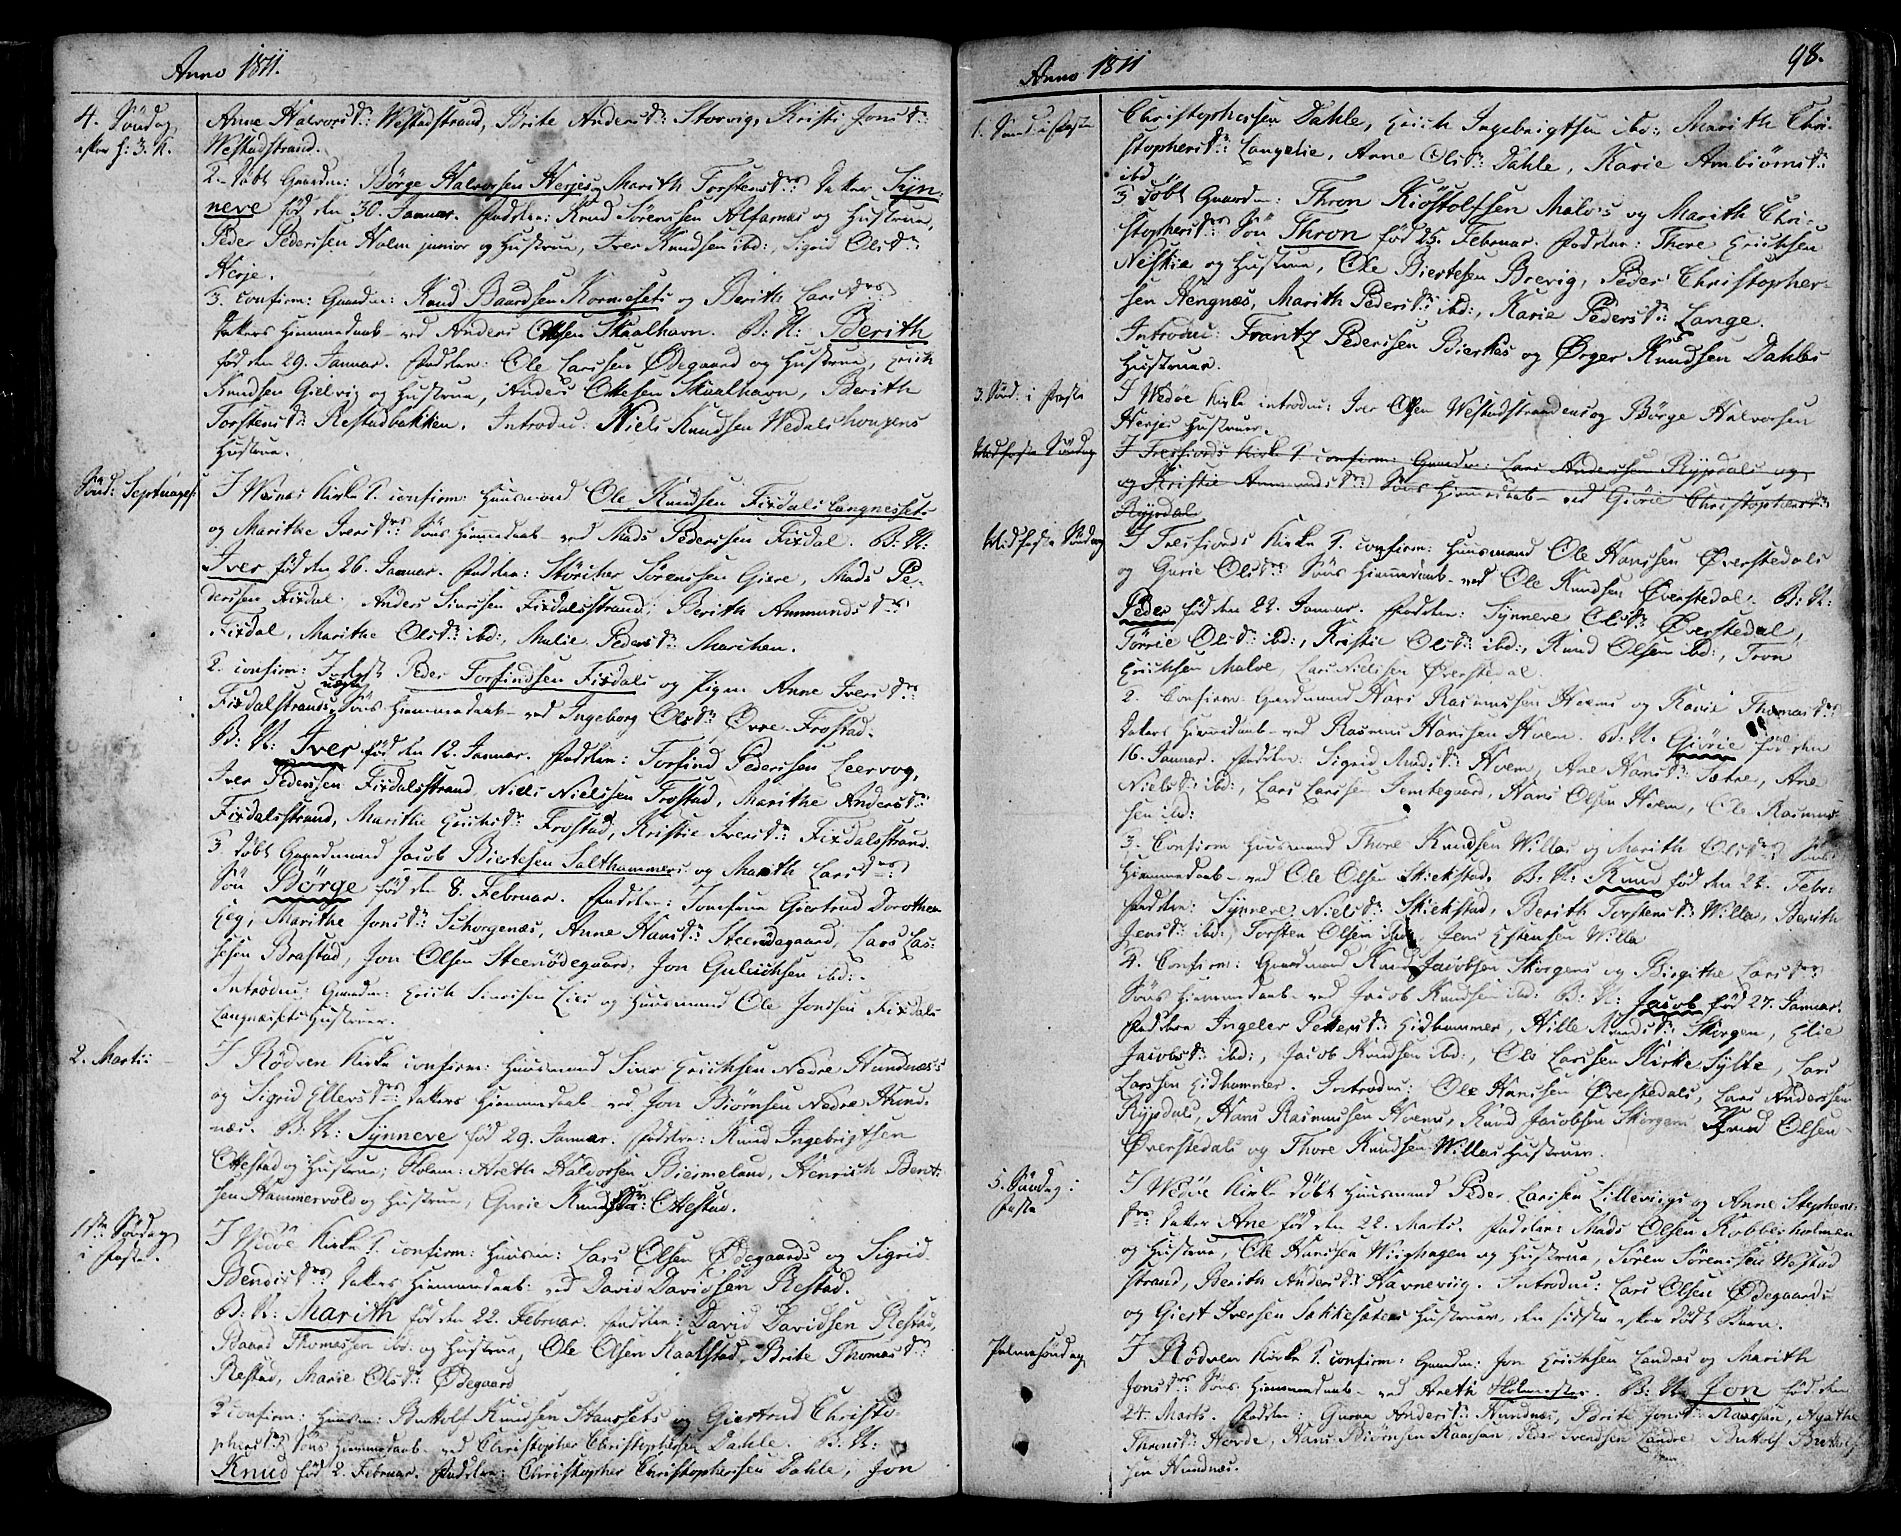 Anno 1811.
4. Søndag
efter h: 3. K.
Anne Halvorsdr: Westadstrand, Brite Andersdr: Storvig, Kristi Jonsdr:
Westadstrand.
2. døbt Gaardm: Børge Halvorsen Herjes og Marith Torstensdrs: Datter Syn-
neve fød den 30. Januar. Fadderne: Knud Sørensen Alfarnæs og Hustrue,
Peder Pedersen Holm junior og Hustrue, Iver Knudsen ibd:, Sigrid Olsdr:
Herje.
3. confirm: Gaardm: Knud Baardsen Kormesets og Berith Larsdrs:
Datters Hiemmedaab ved Anders Ottesen Skaalhavn. B: N: Berith
fød den 29. Januar. Fadderne: Ole Larsen Ødegaard og Hustrue, Erich
Knudsen Gielvig og Hustrue, Anders Ottesen Skaalhavn, Berith
Torstensdr: Restadbakken. Introdu: Niels Knudsen Wedalshougens
Hustrue.
Sønd: Septuages:
I Wognes Kirke 1. confirm: Huusmand Ole Knudsen Fixdals Langnessets
og Marithe Iversdrs: Søns Hiemmedaab ved Mads Pedersen Fixdal. B: N:
Iver fød den 26. Januar. Fadderne: Størcher Sørensen Giere, Mads Pe-
dersen Fixdal, Anders Siursen Fixdalsstrand, Berith Ammundsdr:
Fixdal, Marithe Olsdr: ibd:, Malie Pedersdr: Marchen.
2. confirm: Peder Torfindsen Fixdals og Pigen Anne Iversdrs:
Fixdalstrands uægte Søns Hiemmedaab ved Ingeborg Olsdr: Øvre-Frostad.
B: N: Iver fød den 12. Januar. Fadderne: Torfind Pedersen Leervog,
Iver Pedersen Fixdalsstrand, Niels Nielsen Frostad, Marithe Andersdr:
Fixdalsstrand, Marithe Erichsdr: Frostad, Kristie Iversdr: Fixdalsstrand.
3. døbt Gaardmand Jacob Biertesen Salthammers og Marith Larsdrs:
Søn Børge fød den 8. Februar. Fadderne: Jomfrue Giertrud Dorothea
Eeg, Marithe Jonsdr: Schorgenæs, Anne Hansdr: Steenødegaard, Lars Las-
sesen Brastad, Jon Olsen Steenødegaard, Jon Gulichsen ibd:
Introdu: Gaardm: Erich Siursen Lies og Huusmand Ole Jonsen Fixdals
Langnæsets Hustruer.
2. Martii
I Rødven Kirke confirm: Huusmand Siver Erichsen Nedre Hundnæs's
og Sigrid Ellersdrs: Datters Hiemmedaab ved Jon Biørnsen Nedre Hund-
næs. B: N: Synneve fød 29. Januar. Fadderne: Knud Ingebrigtsen
Ottestad og Hustrue, Holm: Areth Haldorsen Biermeland, Henrich Bent-
sen Hammervold og Hustrue, Gurie Knudsdr: Ottestad.
1ste Søndag
i Faste.
I Wedøe Kirke 1. confirm: Huusm: Lars Olsen Ødegaards og Sigrid
Bendixdrs: Datters Hiemmedaab: ved David Davidsen Restad.
B: N: Marith fød den 22. Februar. Fadderne: David Davidsen Restad,
Baard Thomassen ibd: og Hustrue, Ole Olsen Kaalstad, Brite Thomasdr:
Restad, Marie Olsdr: Ødegaard
2. confirm: Huusm: Buttolf Knudsen Hanssets og Giertrud Christo-
phersdrs: Søns Hiemmedaab ved Christopher Christophersen Dahle. B: N:
Knud fød 2. Februar. Fadderne: Christopher Christophersen Dahle, Jon
Anno 1811
98.
1. Sønd: i Faste
Christophersen Dahle, Erich Ingebrigtsen ibd:, Marith Chri-
stophersdr: Langelie, Anne Olsdr: Dahle, Karie Ambiørnsdr:
ibd.
3 døbt Gaardm: Thron Kiøstolfsen Malos og Marith Chri-
stophersdrs: Søn Thron fød 25. Februar. Fadderne: Thore Erichsen
Neskie og Hustrue, Ole Biertesen Brevig, Peder Christopher-
sen Hengnæs, Marith Pedersdr: ibd:, Karie Pedersdr: Lange.
Introdu: Frantz Pedersen Bierkes og Ørger Knudsen Dahles
Hustruer.
3. Sønd: i Faste
I Wedøe Kirke introdu: Iver Olsen Westadstrandens og Børge Halvorsen
Herjes Hustruer.
Midfaste Søndag
I Tresfiords Kirke 1. confirm: Gaardm: Lars Andersen Rypdals og
og Kristie Ammundsdrs: Søns Hiemmedaab ved Giørie Christophersdr:
Rypdal
Midfaste Søndag
I Tresfiords Kirke 1. confirm: Huusmand Ole Hansen Øverstedals
og Gurie Olsdrs: Søns Hiemmedaab ved Ole Knudsen Øverstedal. B: N:
Peder fød den 22. Januar. Fadderne: Synneve Olsdr: Øverstedal,
Tørrie Olsdr: ibd:, Kristie Olsdr: ibd:, Knud Olsen ibd:, Tron
Erichsen Maloe, Lars Nielsen Øverstedal.
2. Confirm: Gaardmand Hans Rasmussen Hoems og Karie Thomasdrs:
Datters Hiemmedaab ved Rasmus Hansen Hoem. B: N. Giørie fød den
16. Januar. Fadderne: Sigrid Knudsdr: Hoem, Ane Hansdr: Sætre, Ane
Nielsdr: ibd:, Lars Larsen Jemtegaard, Hans Olsen Hoem, Ole Rasmus-
sen ibd:
3. Confirm Huusmand Thore Knudsen Willas og Marith Olsdrs: Søns
Hiemmedaab ved Ole Olsen Skiekstad. B: N: Knud fød den 22. Febr:
Fadderne: Synneve Nielsdr: Skiekstad, Berith Torstensdr: Willa, Berith
Jensdr: ibd:, Torsten Olsen ibd:, Jens Estensen Willa
4. Confirm: Gaardmand Knud Jacobsen Skorgens og Birgithe Larsdrs:
Søns Hiemmedaab ved Jacob Knudsen ibd: B: N: Jacob fød 27. Januar.
Fadderne Ingeler Pettersdr: Eidhammer, Hille Knudsdr: Skorgen, Elie
Jacobsdr: ibd:, Jacob Knudsen ibd:, Ole Larsen Kirke Sylte, Lars
Larsen Eidhammer. Introdu: Ole Hansen Øverstedals, Lars Anderssen
Rypdals, Hans Rasmussen Hoems, Knud Jacobsen Skorgens, Knud Olsen
Øverstedals og Thore Knudsen Willas Hustruer.
5. Søndag i
Faste
I Wedøe Kirke døbt Huusmand Peder Larsen Lillevigs og Anne Stephens-
drs: Datter Ane fød den 22. Marts. Fadderne: Mads Olsen Kobbesholmen
og Hustrue, Ole Hansen Wiighagen og Hustrue, Søren Sørensen Westad
strand, Berith Andersdr: Havnevig. Introdu: Lars Olsen Ødegaards
og Giert Iversen Sakkesætres Hustruer, den sidste efter dødt Barn.
Palmesøndag
I Rødven Kirke 1. confirm: Gaardm: Jon Erichsen Landres og Marith
Jonsdrs: Søns Hiemmedaab ved Areth Holmester. B: N: Jon fød den
24. Marts. Fadderne: Guroe Andersdr: Hundnæs, Brite Jonsdr: Raasan, Agathe
Thronsdr: Horde, Hans Biørnsen Raasan, Peder Svendsen Landre, Buttolf Buttolf-
sen Hundnæs.